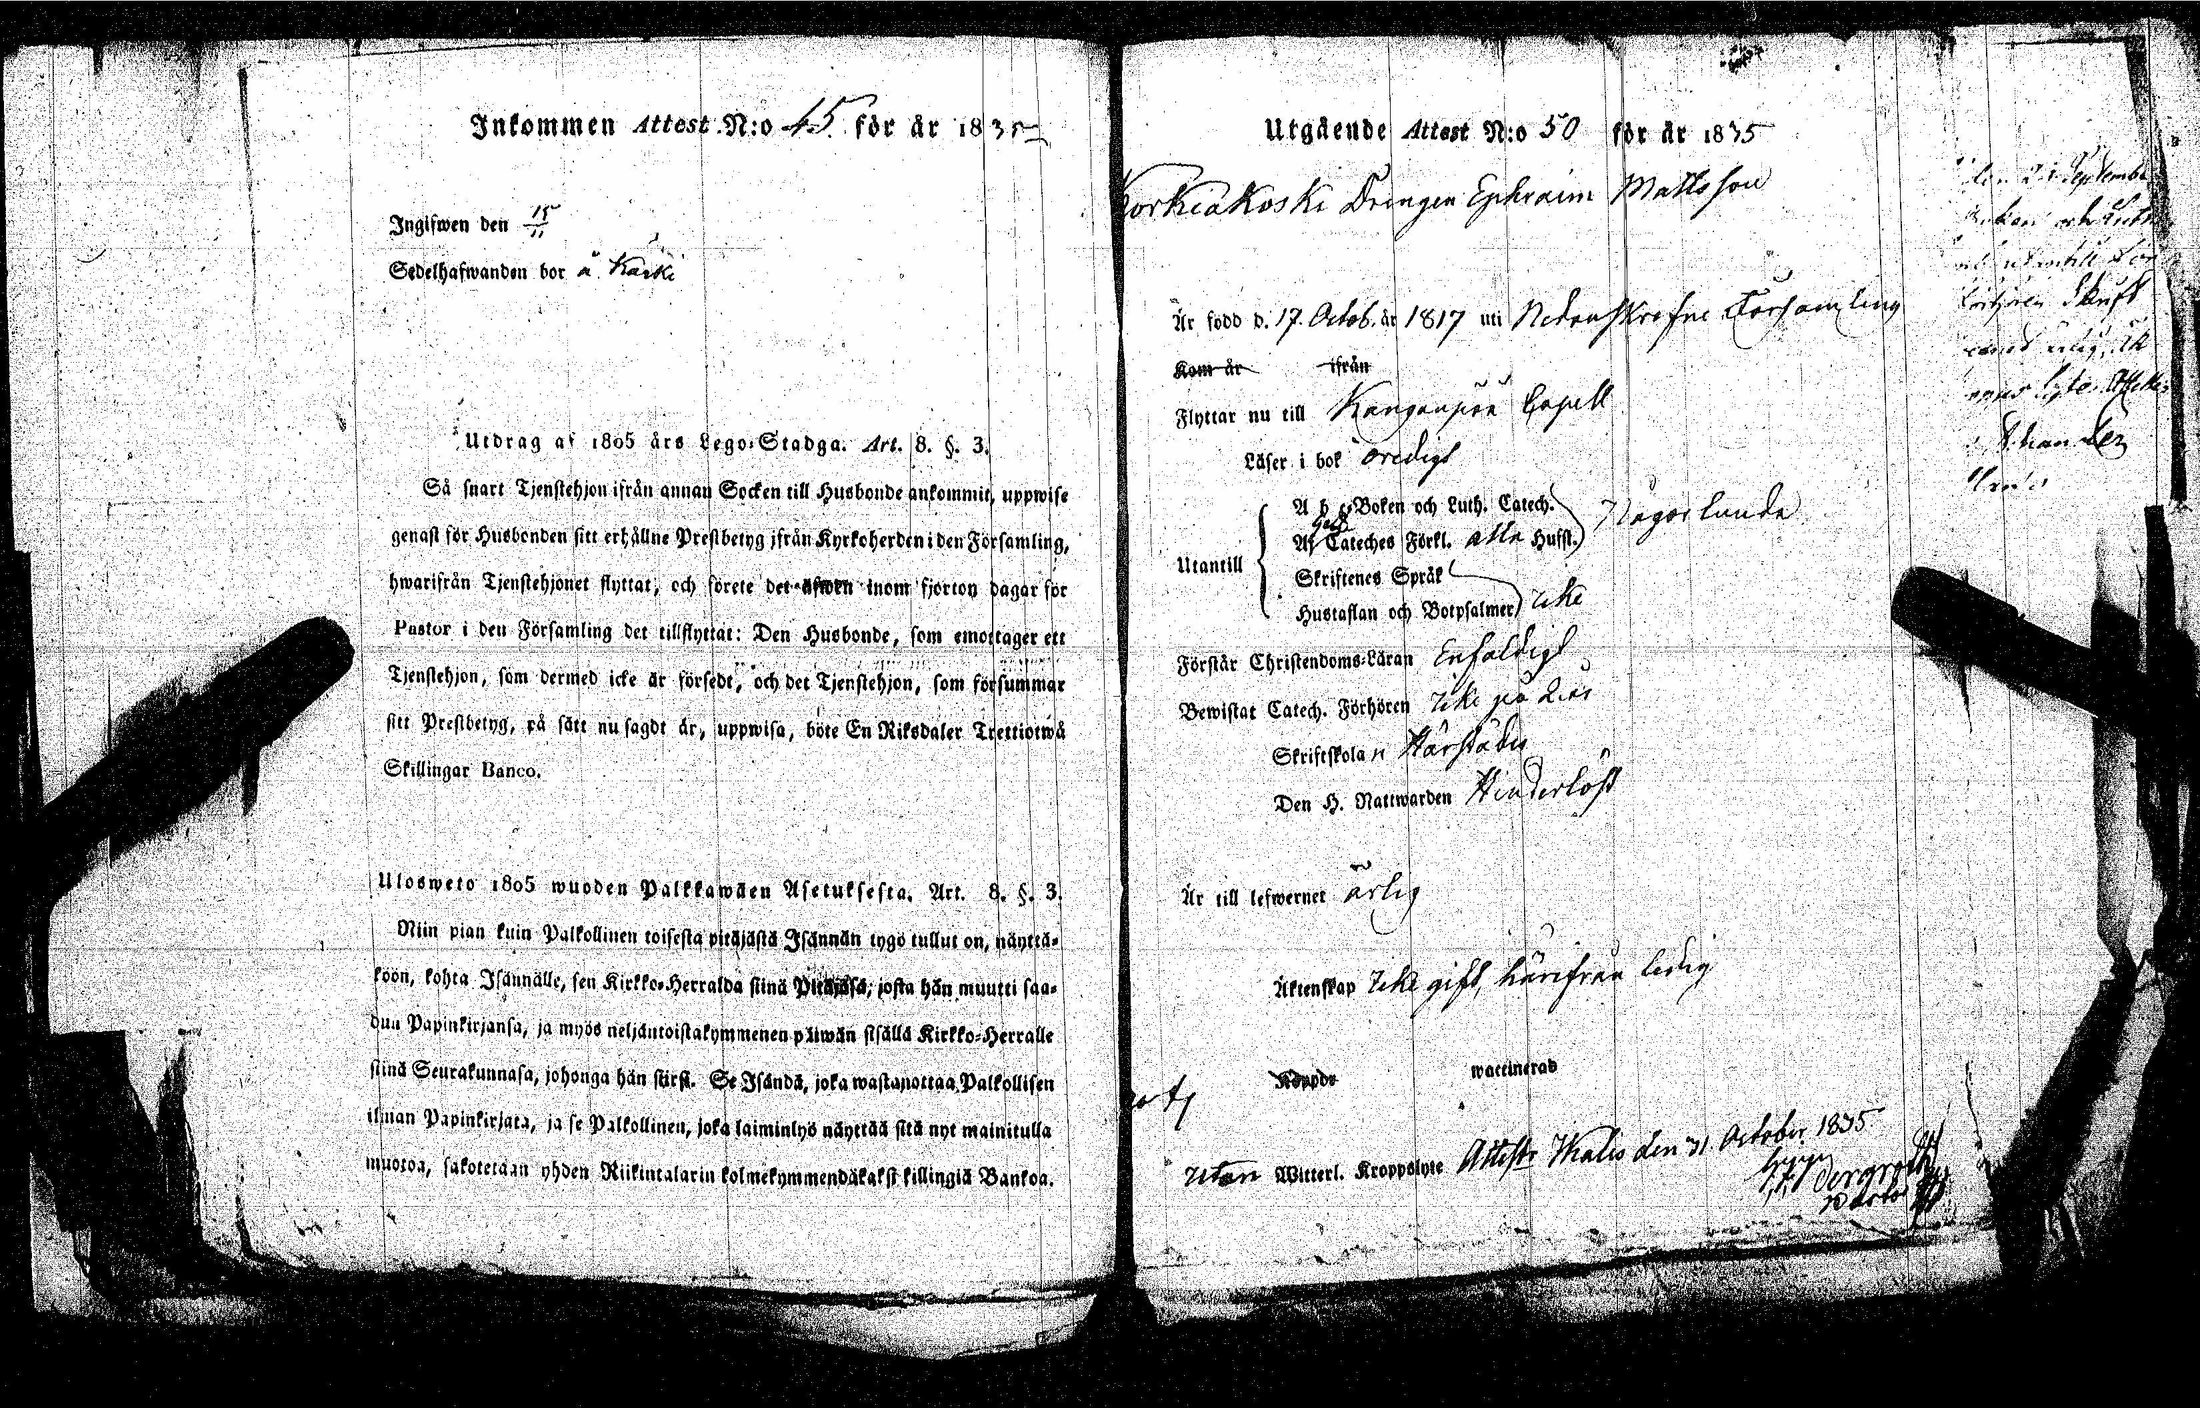 Inkommen Attest N:o 45. för år 1835
Ingifwen den 15/11
Sedelhafwanden bor å Karki
Utdrag af 1805 års Lego-Stadga. Art. 8. §. 3.
Så snart Tjenstehjon ifrån annan Socken till Husbonde ankommit, uppwise
genast för Husbonden sitt erhållne Prestbetyg ifrån Kyrkoherden i den Församling,
hwarifrån Tjenstehjonet flyttat, och förete det äfwen inom fjorton dagar för
Pastor i den Församling det tillflyttat: Den Husbonde, som emottager ett
Tjenstehjon, som dermed icke är försedt, och det Tjenstehjon, som försummar
sitt Prestbetyg, på sätt nu sagdt är, uppwisa, böte En Riksdaler Trettiotwå
Skillingar Banco.
Ulosweto 1805 wuoden Palkkawäen Asetuksesta. Art. 8. §. 3.
Niin pian kuin Palkollinen toisesta pitäjästä Isännän tygö tullut on, näyttä-
köön, kohta Isännälle, sen Kirkko-Herralda siinä Pitäjäsä, josta hän muutti saa-
dun Papinkirjansa, ja myös neljäntoistakymmenen päiwän sisällä Kirkko-Herralle
siinä Seurakunnasa, johonga hän siirsi. Se Isändä, joka wastanottaa Palkollisen
ilman Papinkirjata, ja se Palkollinen, joka laiminlyö näyttää sitä nyt mainitulla
muotoa, sakotetaan yhden Riikintalarin kolmekymmendäkaksi killingiä Bankoa.
Utgående Attest N:o 50 för år 1835
Korkiakoski Drengen Ephraim Mattsson
Är född d. 17. Octob. år 1817 uti Nedanskrefne Församling
Kom år ifrån
Flyttar nu till Kanganpää Capell
Läser i bok oredigt
A b c-Boken och Luth. Catech. Någorlunda
Utantill
Af Cateches Förkl. alla Husft.
Skriftenes Språk
Hustaflan och Botpsalmer Icke
Förstår Christendoms-Läran Enfaldigt
Bewistat Catech. Förhören Icke på 2 år
Skriftskolan Härstädes
Den H. Nattwarden Hinderlöst
Är till lefwernet ärlig
Äktenskap Icke gift, härifrån ledig
Koppor waccinerad
Utan Witterl. Kroppslyte Attest. Ikalis den 31. October 1835
den Septembr
Skrift